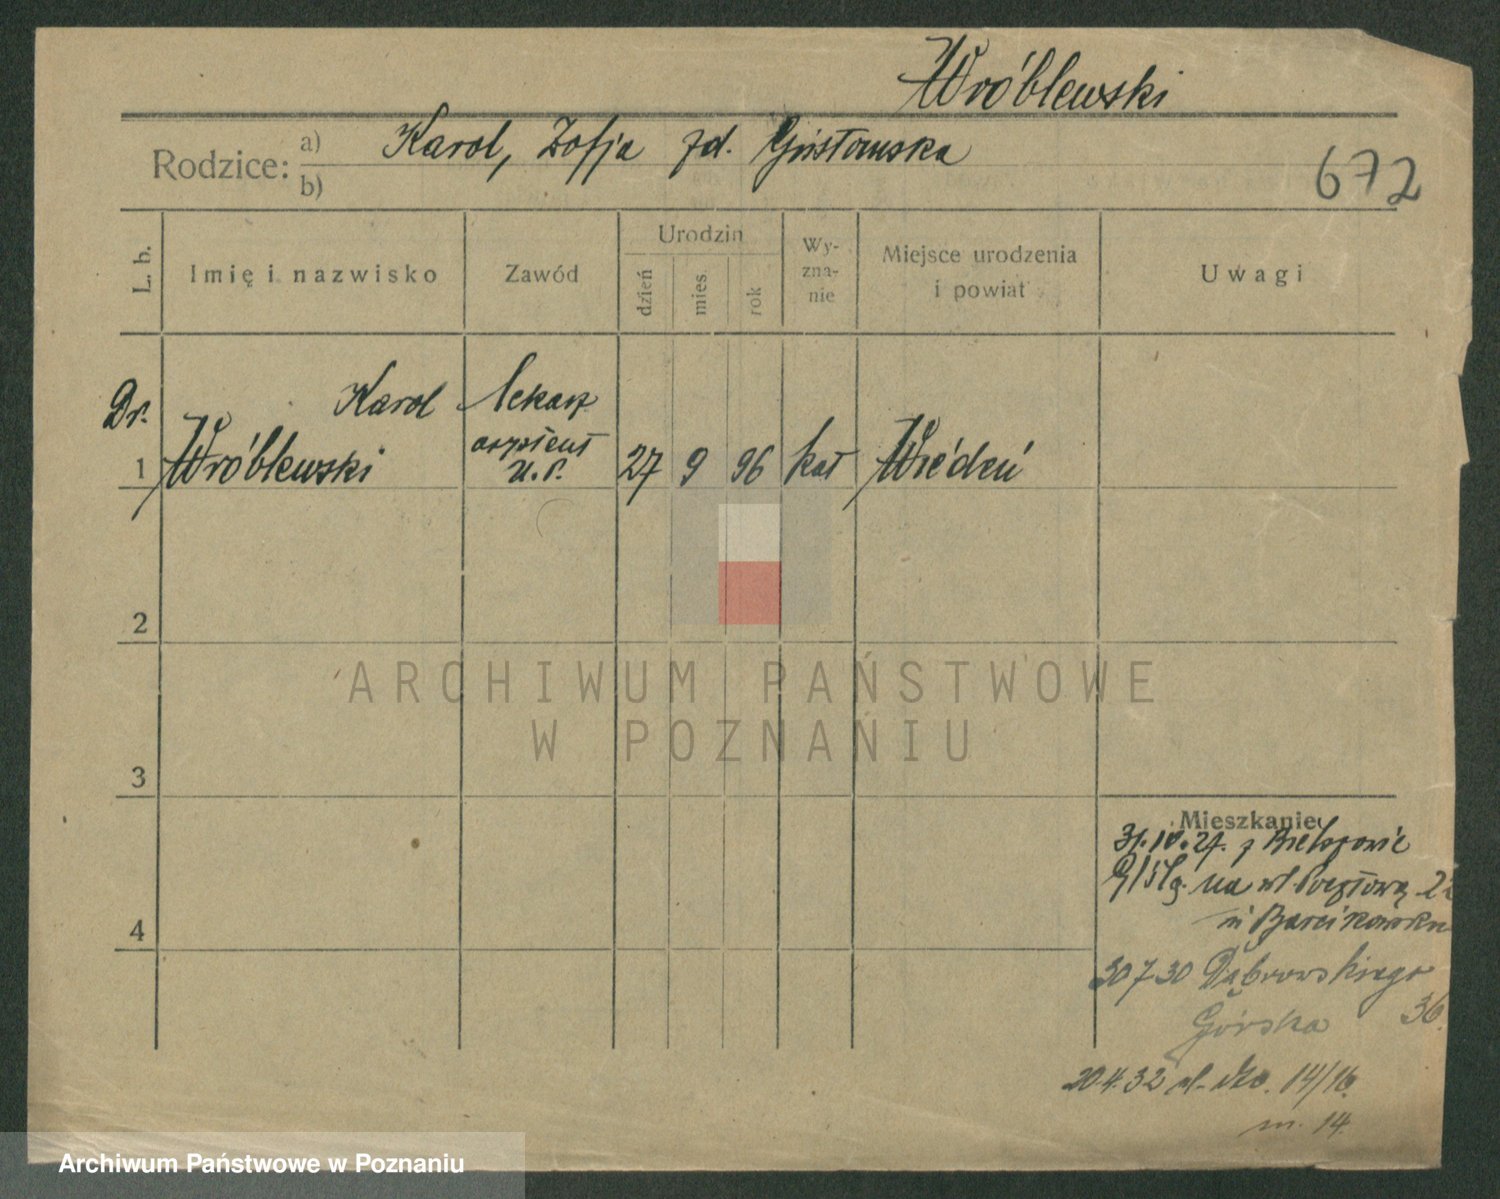 Wróblewski
Rodzice: a) Karol, Zofja zd.
b)
672
L. b.
Imię i nazwisko
Zawód
Urodzin
dzień
mies.
rok
Wy-
zna-
nie
Miejsce urodzenia
i powiat
Uwagi
Dr. Karol
1 Wróblewski
lekarz
asystent
U.P.
27 9 96 kat Wiedeń
2
3
4
ARCHIWUM PAŃSTWOWE
W POZNANIU
Mieszkanie
31.10.27. z Bielszowic
G/Śl. na ul. Pocztową
30 7 30 Dąbrowskiego
36.
Górska
20.4.32 14/16
m. 14.
Archiwum Państwowe w Poznaniu